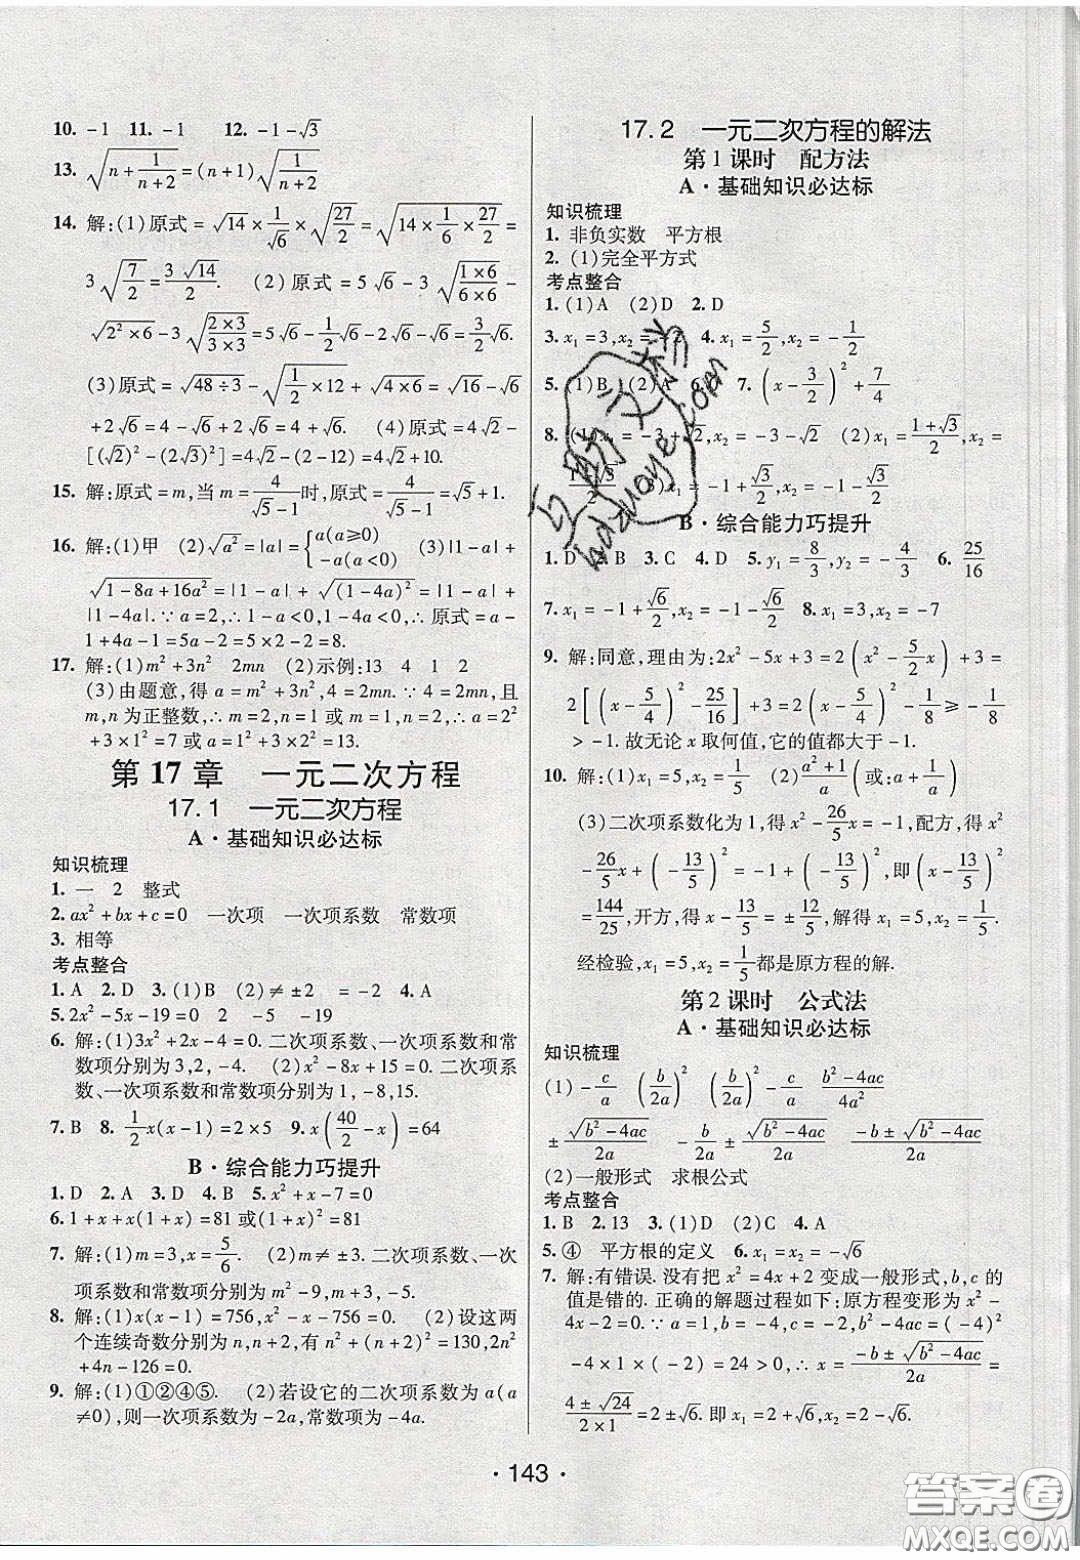 10. -1　11. -1　12. -1-√3
13. √(n+1/(n+2))=(n+1)√(1/(n+2))
14. 解:(1)原式=√14×1/√6×√(27/2)=√(14×1/6×27/2)=
3√(7/2)=3√14/2.　(2)原式=5√6-√((1×6)/(6×6))-
√(2²×6)-3√((2×3)/(3×3))=5√6-1/6√6-2√6-√6=3/2√6.
(3)原式=√(48÷3)-√(1/2×12)+√(4×6)=√16-√6
+2√6=4-√6+2√6=4+√6.　(4)原式=4√2-
[(√2)²-(2√3)²]=4√2-(2-12)=4√2+10.
15. 解:原式=m,当m=4/(√5-1)时,原式=4/(√5-1)=√5+1.
16. 解:(1)甲　(2)√a²=|a|={a(a≥0) -a(a<0)　(3)|1-a|+
√(1-8a+16a²)=|1-a|+√(1-4a)²=|1-a|+
|1-4a|.∵a=2,∴1-a<0,1-4a<0,∴原式=a-
1+4a-1=5a-2=5×2-2=8.
17. 解:(1)m²+3n²　2mn　(2)示例:13　4　1　2
(3)由题意,得a=m²+3n²,4=2mn.∵4=2mn,且
m,n为正整数,∴m=2,n=1或m=1,n=2.∴a=2²
+3×1²=7或a=1²+3×2²=13.
第17章　一元二次方程
17.1　一元二次方程
A·基础知识必达标
知识梳理
1. 一　2　整式
2. ax²+bx+c=0　一次项　一次项系数　常数项
3. 相等
考点整合
1. A　2. D　3. (1)B　(2)≠±2　=2　4. A
5. 2x²-5x-19=0　2　-5　-19
6. 解:(1)3x²+2x-4=0.二次项系数、一次项系数和常
数项分别为3,2,-4.　(2)x²-8x+15=0.二次项系
数、一次项系数和常数项分别为1,-8,15.
7. B　8. 1/2x(x-1)=2×5　9. x(40/2-x)=64
B·综合能力巧提升
1. D　2. A　3. D　4. B　5. x²+x-7=0
6. 1+x+x(1+x)=81或(1+x)²=81
7. 解:(1)m=3,x=5/6.　(2)m≠±3.二次项系数、一次
项系数和常数项分别为m²-9,m+3,-5.
8. 解:(1)x(x-1)=756,x²-x-756=0.　(2)设这两
个连续奇数分别为n,n+2,有n²+(n+2)²=130,2n²
+4n-126=0.
9. 解:(1)①②④⑤.　(2)若设它的二次项系数为a(a
≠0),则一次项系数为-2a,常数项为-4a.
17.2　一元二次方程的解法
第1课时　配方法
A·基础知识必达标
知识梳理
1. 非负实数　平方根
2. (1)完全平方式
考点整合
1. (1)A　(2)D　2. D
3. x₁=3,x₂=　4. x₁=5/2,x₂=-1/2
5. (1)B　(2)A　6.　7. (x-3/2)²+7/4
8. (1)x₁=-3+√2,x₂=-3-√2　(2)x₁=(1+√3)/2,x₂=
(1-√3)/2　(3)x₁=-1+√5/2,x₂=-1-√5/2
B·综合能力巧提升
1. D　2. B　3. C　4. D　5. y₁=8/3,y₂=-4/3　6. 25/16
7. x₁=-1+√6/2,x₂=-1-√6/2　8. x₁=3,x₂=-7
9. 解:同意,理由为:2x²-5x+3=2(x²-5/2x)+3=
2[(x-5/4)²-25/16]+3=2(x-5/4)²-1/8≥-1/8
>-1.故无论x取何值,它的值都大于-1.
10. 解:(1)x₁=5,x₂=1/5　(2)(a²+1)/a(或:a+1/a)
(3)二次项系数化为1,得x²-26/5x=-1,配方,得x²
-26/5x+(-13/5)²=-1+(-13/5)²,即(x-13/5)²
=144/25,开方,得x-13/5=±12/5,解得x₁=5,x₂=1/5.
经检验,x₁=5,x₂=1/5都是原方程的解.
第2课时　公式法
A·基础知识必达标
知识梳理
(1)-c/a　(b/2a)²　(b/2a)²　(b²-4ac)/4a²
±√(b²-4ac)/2a　-b/2a±√(b²-4ac)/2a　(-b±√(b²-4ac))/2a
(2)一般形式　求根公式
考点整合
1. B　2. 13　3. (1)D　(2)C　4. A
5. ④　平方根的定义　6. x₁=x₂=-√6
7. 解:有错误.没有把x²=4x+2变成一般形式,b,c的
值是错的.正确的解题过程如下:原方程变形为x²-
4x-2=0.∵a=1,b=-4,c=-2,b²-4ac=(-4)²
-4×1×(-2)=24>0,∴x=(-b±√(b²-4ac))/2a=
(4±√24)/(2×1)=2±√6.即x₁=2+√6,x₂=2-√6.
·143·
答案圈
MXQE.COM